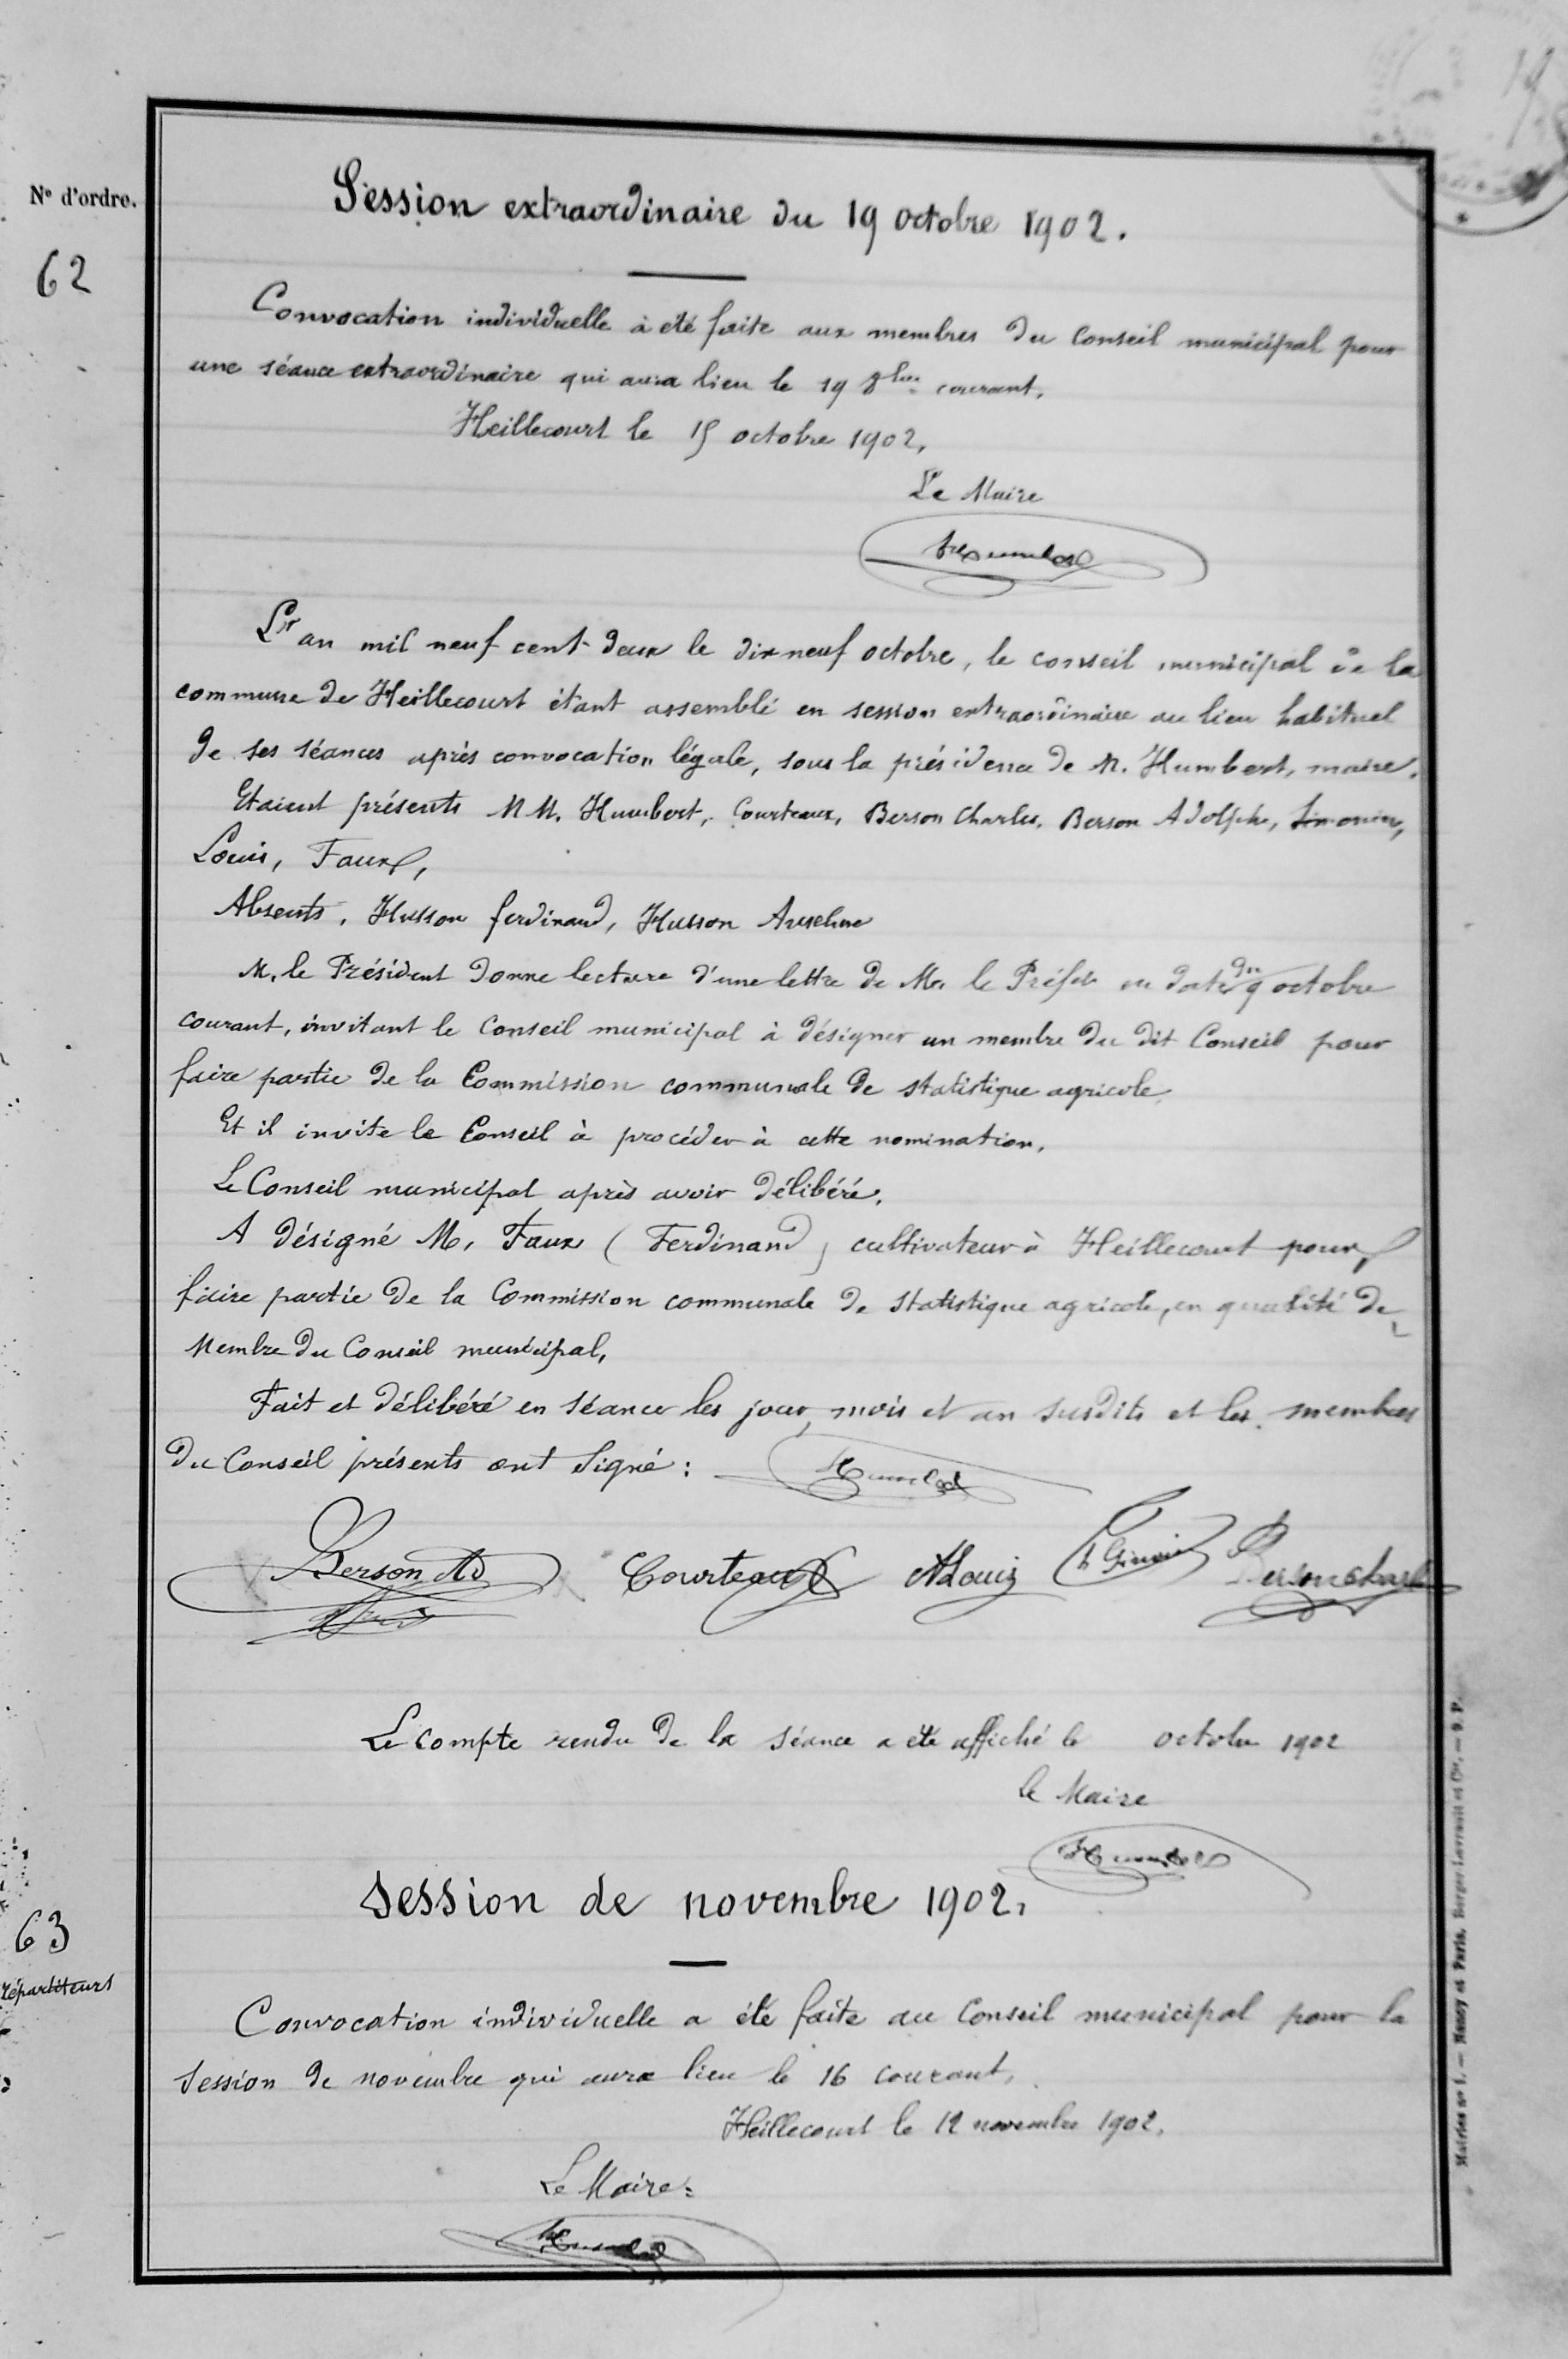 N° d'ordre.
Session extraordinaire du 19 octobre 1902.
62
Convocation individuelle à été faite aux membres du Conseil municipal pour
une séance extraordinaire qui aura lieu le 19 8bre courant.
Heillecourt le 15 octobre 1902,
Le Maire
Humbert
L'an mil neuf cent deux le dix neuf octobre, le conseil municipal de la
commune de Heillecourt étant assemblé en session extraordinaire au lieu habituel
de ses séances après convocation légale, sous la présidence de M. Humbert, maire.
Etaient présents MM. Humbert, Courteaux, Berson Charles, Berson Adolphe, Simonin,
Louis, Faux,
Absents, Husson ferdinand, Husson Anselme
M. le Président donne lecture d'une lettre de Mr le Préfet en date du 9 octobre
courant, invitant le Conseil municipal à désigner un membre du dit Conseil pour
faire partie de la Commission communale de statistique agricole.
Et il invite le Conseil à procéder à cette nomination.
Le Conseil municipal après avoir délibéré.
A désigné M, Faux (Ferdinand) cultivateur à Heillecourt pour
faire partie de la Commission communale de statistique agricole, en qualité de
Membre du Conseil municipal,
Fait et délibéré en séance les jour, mois et an susdits et les membres
du Conseil présents ont signé : Humbert
Berson Ad Courteaux ALouis Berson Charles
Le compte rendu de la séance a été affiché le octobre 1902
le Maire
Humbert
Session de novembre 1902,
63
répartiteurs
Convocation individuelle a été faite au Conseil municipal pour la
session de novembre qui aura lieu le 16 courant,
Heillecourt le 12 novembre 1902,
Le Maire :
Humbert
Mairies n° 1. — Nancy et Paris, Berger-Levrault et Cie. — 9. P.